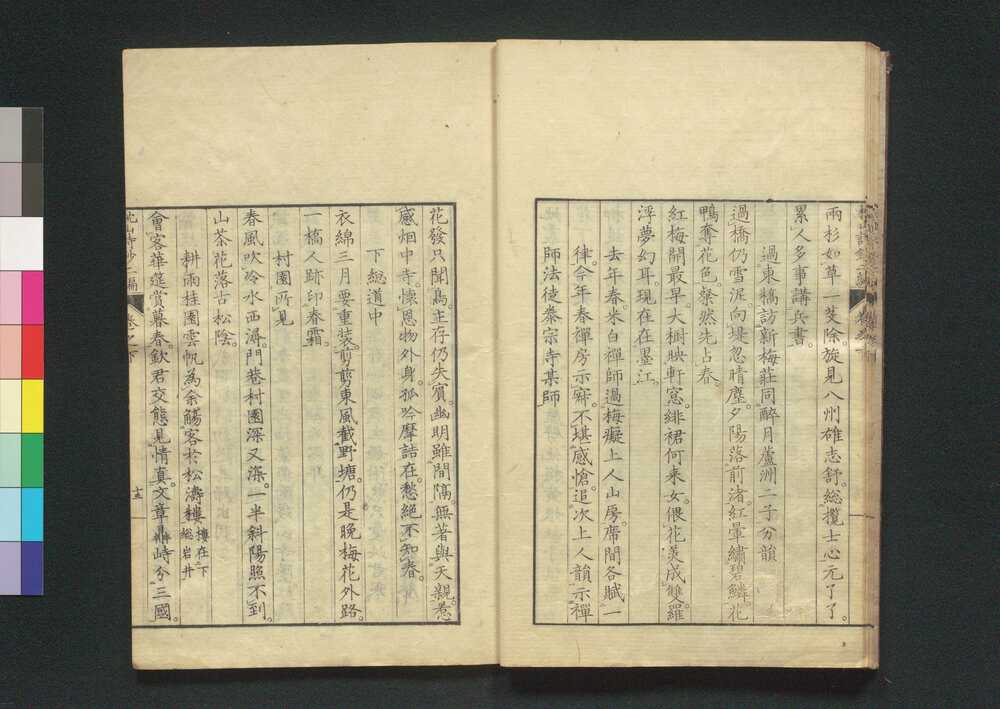 雨杉如草一芟除。旋見八州雄志舒。總攬士心元了了。
累人多事講兵書。
過東橋訪新梅莊同醉月蘆洲二子分韻
過橋仍雪泥向堤忽晴塵。夕陽落前渚。紅暈繡碧鱗。花
鴨奪花色。粲然先占春。
紅梅開最早。大樹映軒窓。緋裙何來女。偎花羨成雙。羅
浮夢幻耳。現在在墨江。
去年春。米白禪師過梅癡上人山房。席間各賦一
律。今年春禪房示寂。不堪感愴。追次上人韻示禪
師法徒泰宗寺某師
花發只聞鳥。主存仍失賓。幽明雖間隔。無著與天親。惹
感烟中寺。懷恩物外身。孤吟摩詰在。愁絕不知春。
下總道中
衣綿三月要重裝。剪剪東風截野塘。仍是晚梅花外路。
一橋人跡印春霜。
村園所見
春風吹冷水西潯。門巷村園深又深。一半斜陽照不到。
山茶花落古松陰。
耕雨桂園雲帆為余觴客於松濤樓 樓在下總岩井
會客華筵賞暮春。欽君交態見情真。文章鼎峙分三國。
枕山詩鈔二編 卷之下 十三